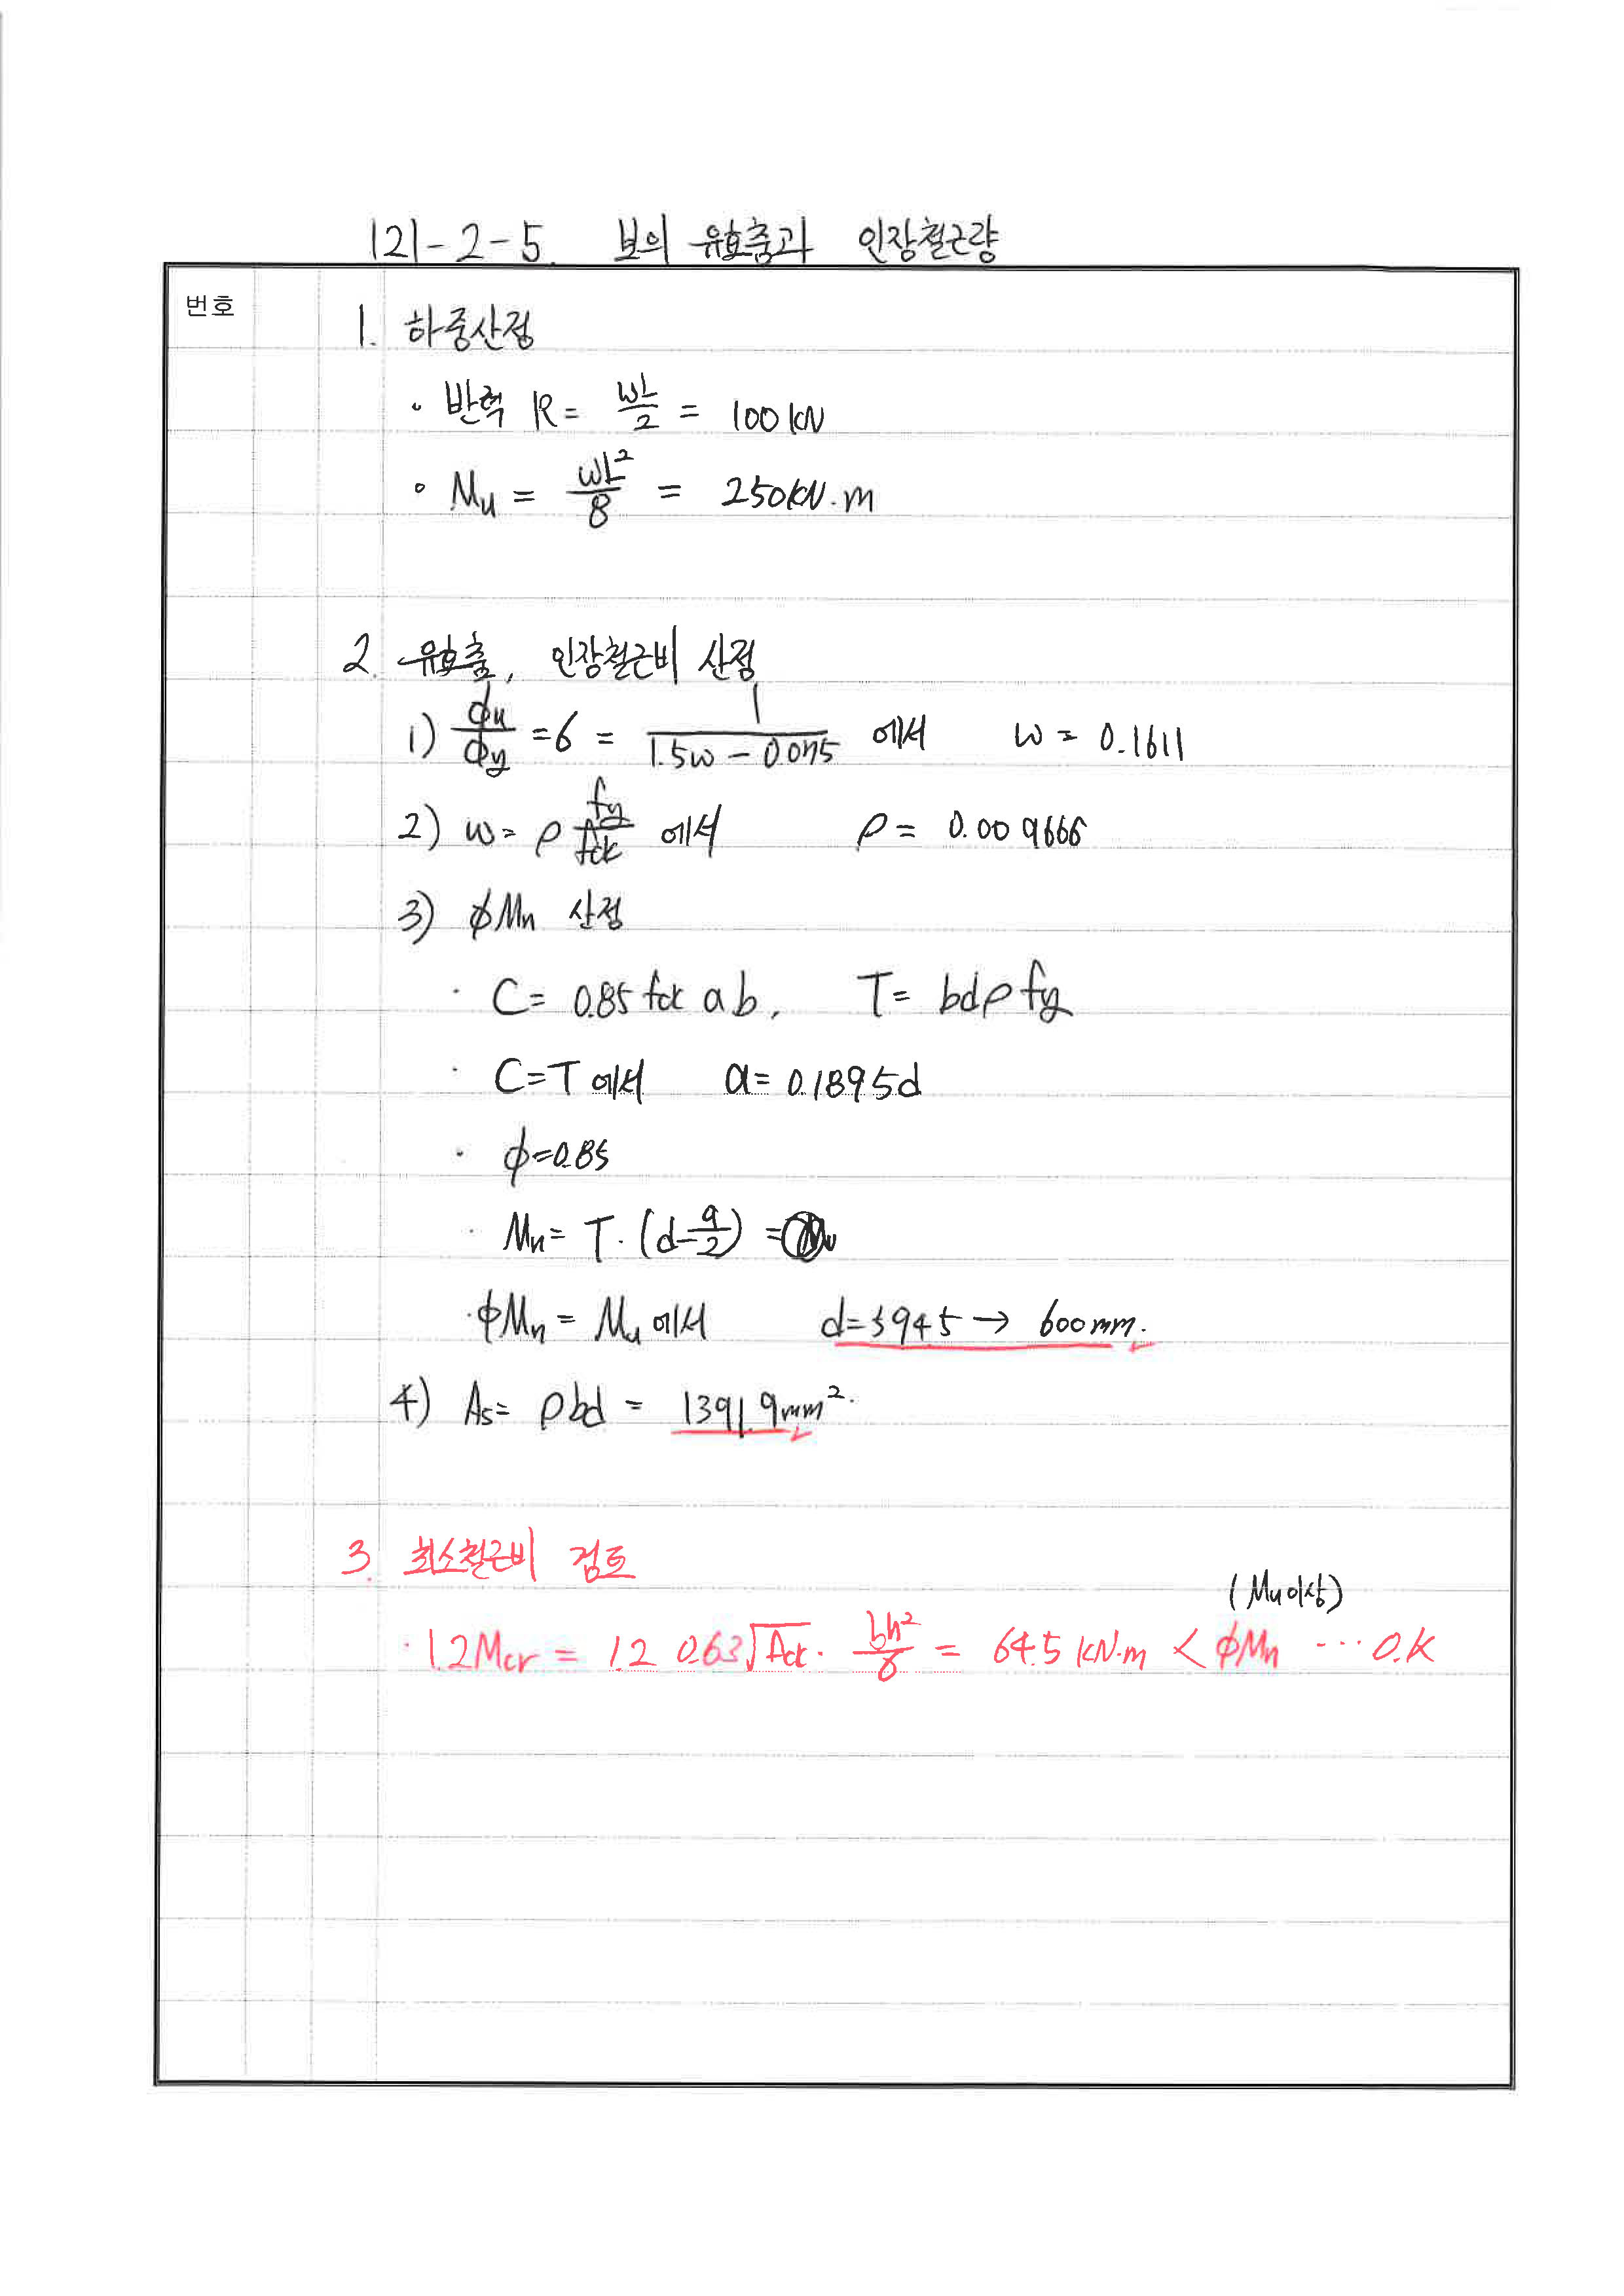 121-2-5. 보의 유효춤과 인장철근량
번호
1. 하중산정
· 반력 R = wL/2 = 100kN
· Mu = wL²/8 = 250kN·m
2. 유효춤, 인장철근비 산정
1) φu/φy = 6 = 1/(1.5w - 0.075) 에서 w = 0.1611
2) w = ρ fy/fck 에서 ρ = 0.009666
3) φMn 산정
· C = 0.85 fck a b, T = bdρfy
· C=T 에서 a = 0.1895d
· φ=0.85
· Mn = T·(d-a/2) =
· φMn = Mu 에서 d=594.5 → 600mm.
4) As = ρbd = 1391.9mm².
3. 최소철근비 검토
(Mu이상)
· 1.2Mcr = 1.2 0.63√fck · bh²/6 = 64.5 kN·m < φMn ··· O.K